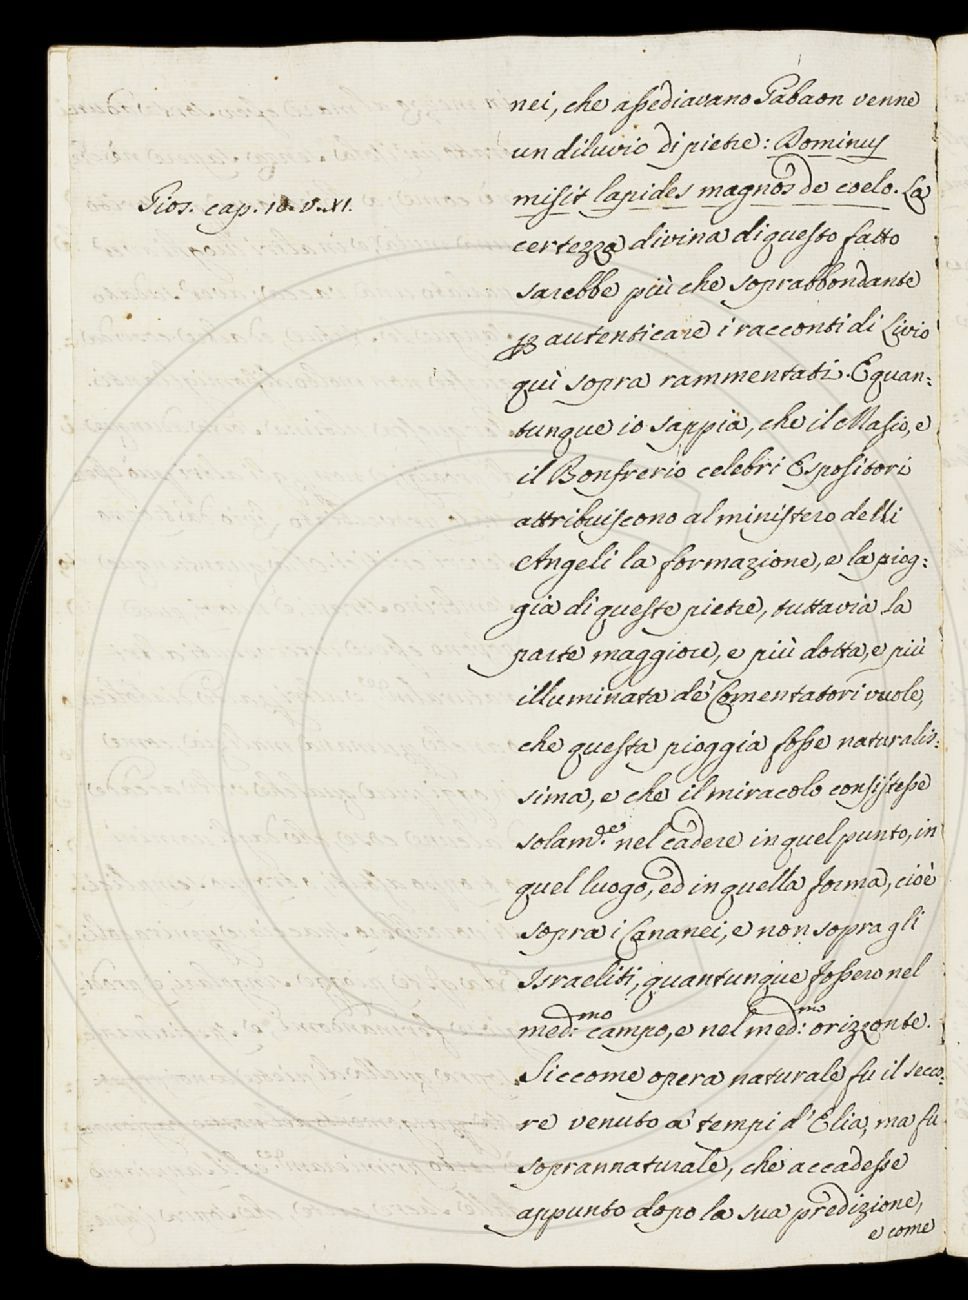 nei, che assediavano Gabaon venne
un diluvio di pietre: Dominus
misit lapides magnos de coelo. La
Gios. cap. 10. v. XI.
certezza divina di questo fatto
sarebbe più che soprabbondante
ꝑ autenticare i racconti di Livio
quì sopra rammentati. E quan:
tunque io sappia, che il Masio, e
il Bonfrerio celebri Espositori
attribuiscono al ministero delli
Angeli la formazione, e la piog:
gia di queste pietre, tuttavia la
parte maggiore, e più dotta, e più
illuminata de' Comentatori vuole,
che questa pioggia fosse naturalis:
sima, e che il miracolo consistesse
solam.de nel cadere in quel punto, in
quel luogo, ed in quella forma, cioè
sopra i Cananei, e non sopra gli
Israeliti, quantunque fossero nel
med:mo campo, e nel med:mo orizzonte.
Siccome opera naturale fu il secco:
re venuto a' tempi d'Elia, ma fu
soprannaturale, che accadesse
appunto dopo la sua predizione,
e come